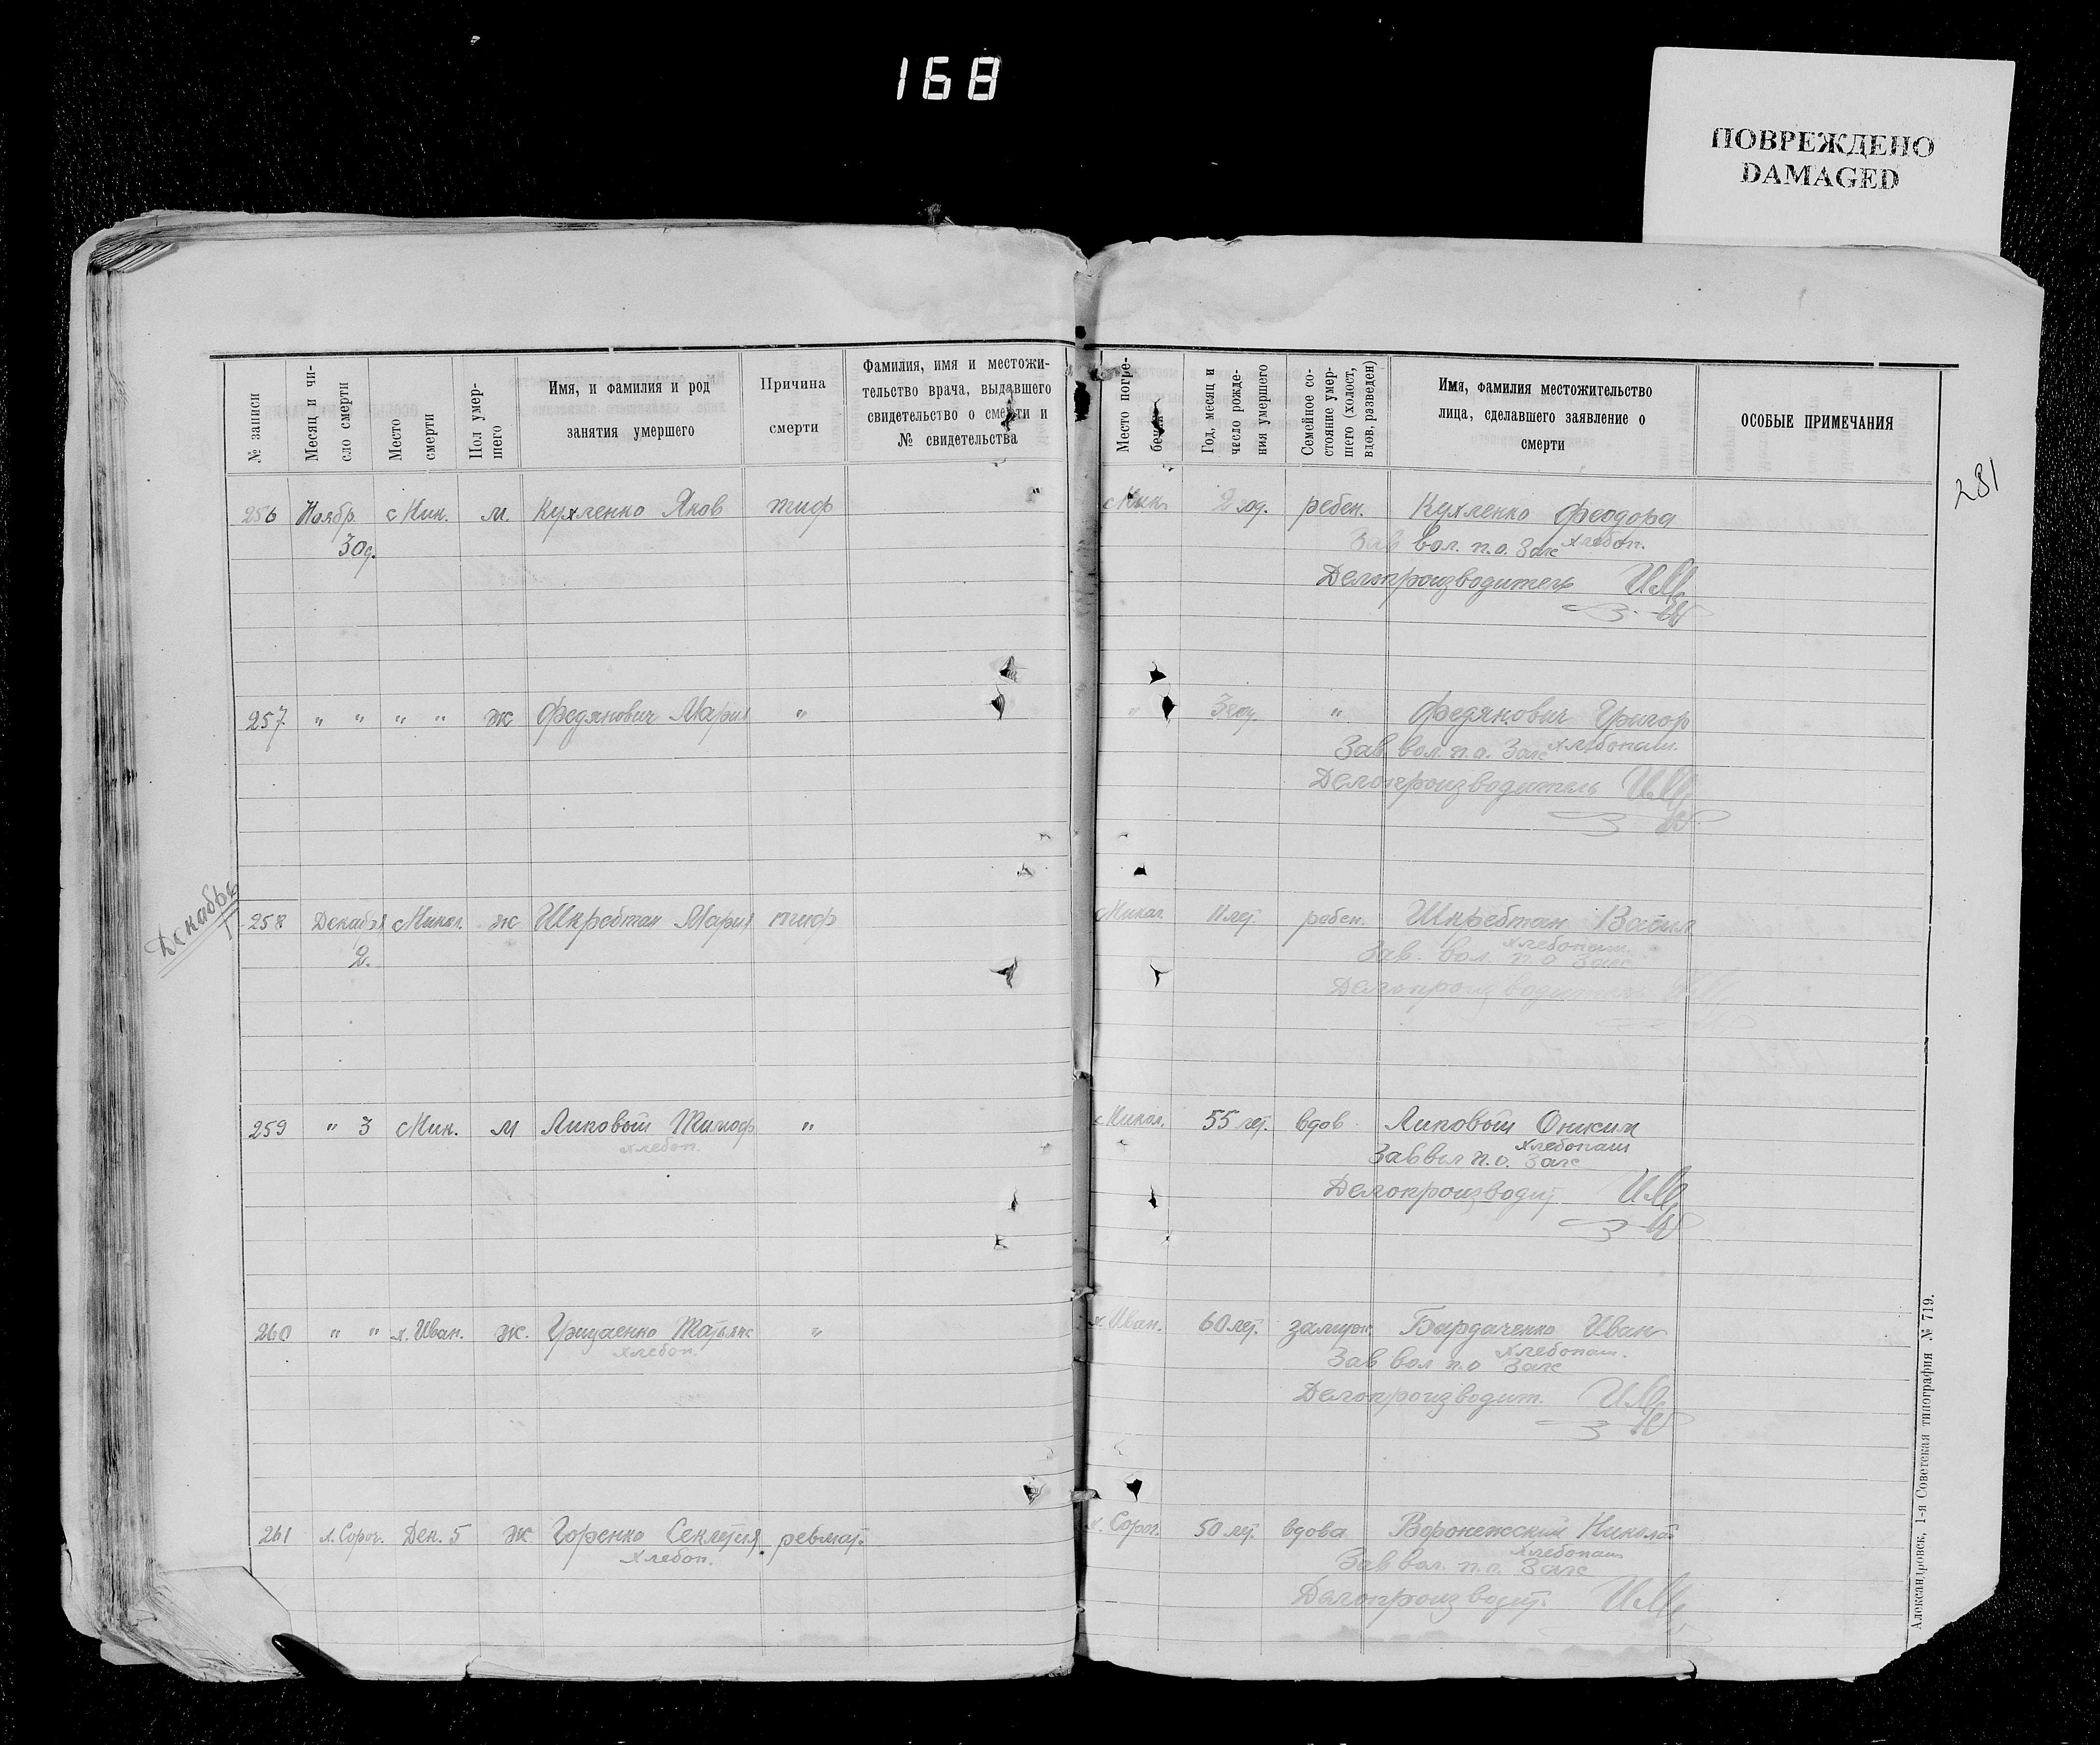 168
ПОВРЕЖДЕНО
DAMAGED
№ записи
Месяц и чи-
сло смерти
Место
смерти
Пол умер-
шего
Имя, и фамилия и род
занятия умершего
Причина
смерти
Фамилия, имя и местожи-
тельство врача, выдавшего
свидетельство о смерти и
№ свидетельства
Место погре-
бения
Год, месяц и
число рожде-
ния умершего
Семейное со-
стояние умер-
шего (холост,
вдов, разведен)
Имя, фамилия местожительство
лица, сделавшего заявление о
смерти
ОСОБЫЕ ПРИМЕЧАНИЯ
281
256 Ноябр. с Ник. м. Кухленко Яков тиф " с Ник. 2 год. ребен. Кухленко Феодора
30д. хлебоп.
Зав вол. п.о. Загс
Делопроизводитель
257 " " " " ж Федянович Мария " " " Федянович Григор
хлебопаш.
Зав вол. п.о. Загс
Делопроизводитель
Декабрь
258 Декабря с Никол. ж Шкребтан Мария тиф с Никол. 11 лет. ребен. Шкребтан Васил
2. хлебопаш
Зав. вол. п.о Загс
Делопроизводитель
259 " 3 с Ник. м Липовой Тимоф " с Никол. 55 лет. вдов. Липовой Оником
хлебоп. хлебопаш
Зав вол п.о. Загс
Делопроизводит
260 " " х. Иван. ж. Гриценко Татьян " х. Иван. 60 лет. замуж. Бардаченко Иван
хлебоп. хлебопаш.
Зав вол п.о Загс
Делопроизводит.
261 х. Сороч. Дек. 5 ж Горенко Секлетия ревмат. х. Сороч. 50 лет. вдова Воронежский Николай
хлебоп. хлебопаш
Зав вол. п.о. Загс
Делопроизводит.
Александровск, 1-я Советская типография № 719.